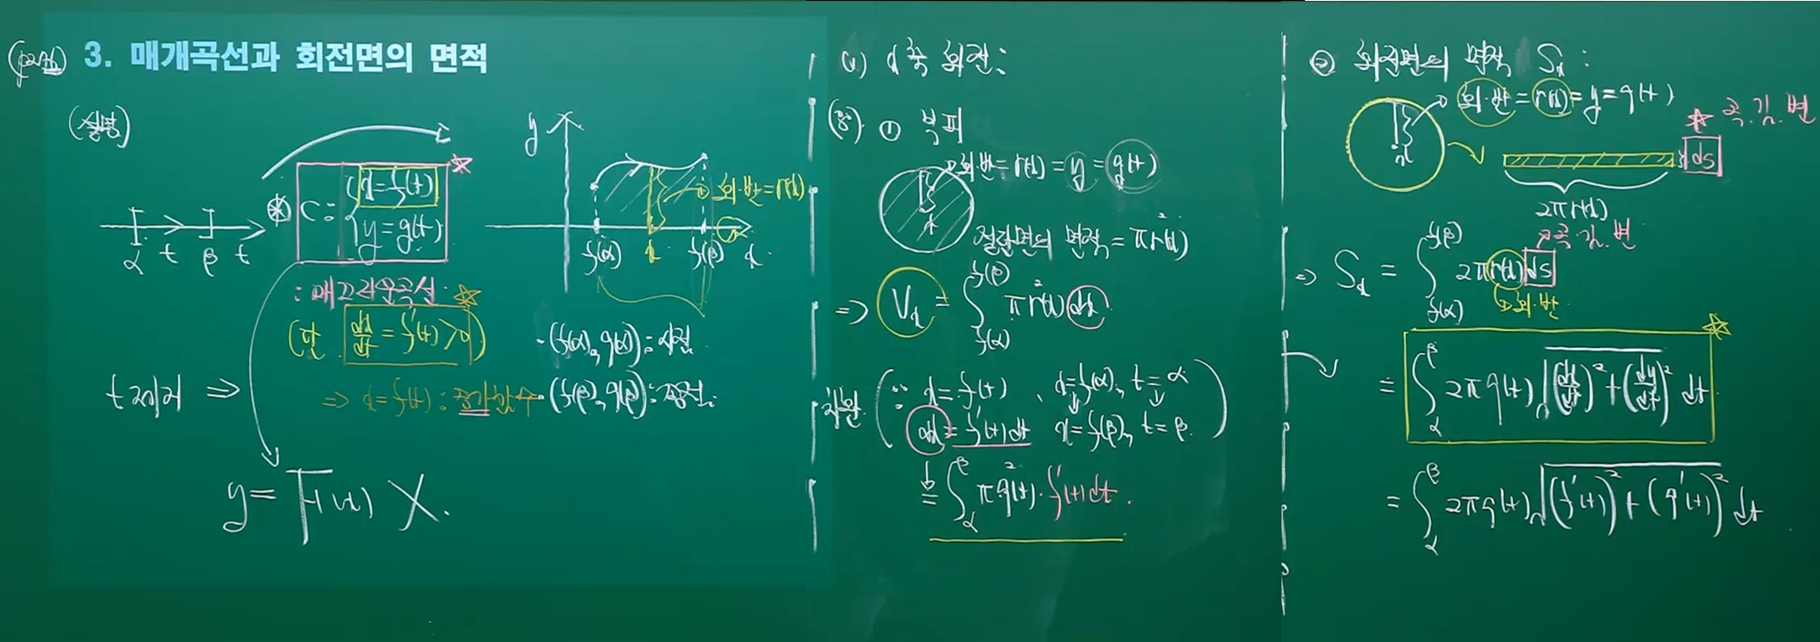 3. 매개곡선과 회전면의 면적
(설명)
α t β t
C: { x = f(t)
y = g(t)
: 매끄러운곡선
(단 dx/dt = f'(t) > 0)
⇒ x = f(t) : 증가함수
t 제거 ⇒
y = F(x) X.
y
회·반 = r(x)
f(α) x f(β) x
· (f(α), g(α)) : 시점
· (f(β), g(β)) : 종점
(1) x축 회전:
(증) ① 부피
회·반 = r(x) = y = g(t)
x
절단면의 면적 = πr²(x)
⇒ Vx = ∫_{f(α)}^{f(β)} πr²(x) dx
치환 (∵ x = f(t), x = f(α), t = α
dx = f'(t)dt x = f(β), t = β.)
= ∫_α^β πg²(t)·f'(t)dt.
② 회전면의 면적 Sx :
회·반 = r(x) = y = g(t)
x
☆ 곡.길.변
ds
2πr(x)
곡.길.변
⇒ Sx = ∫_{f(α)}^{f(β)} 2πr(x) ds
회·반
= ∫_α^β 2πg(t) √((dx/dt)² + (dy/dt)²) dt
= ∫_α^β 2πg(t) √((f'(t))² + (g'(t))²) dt